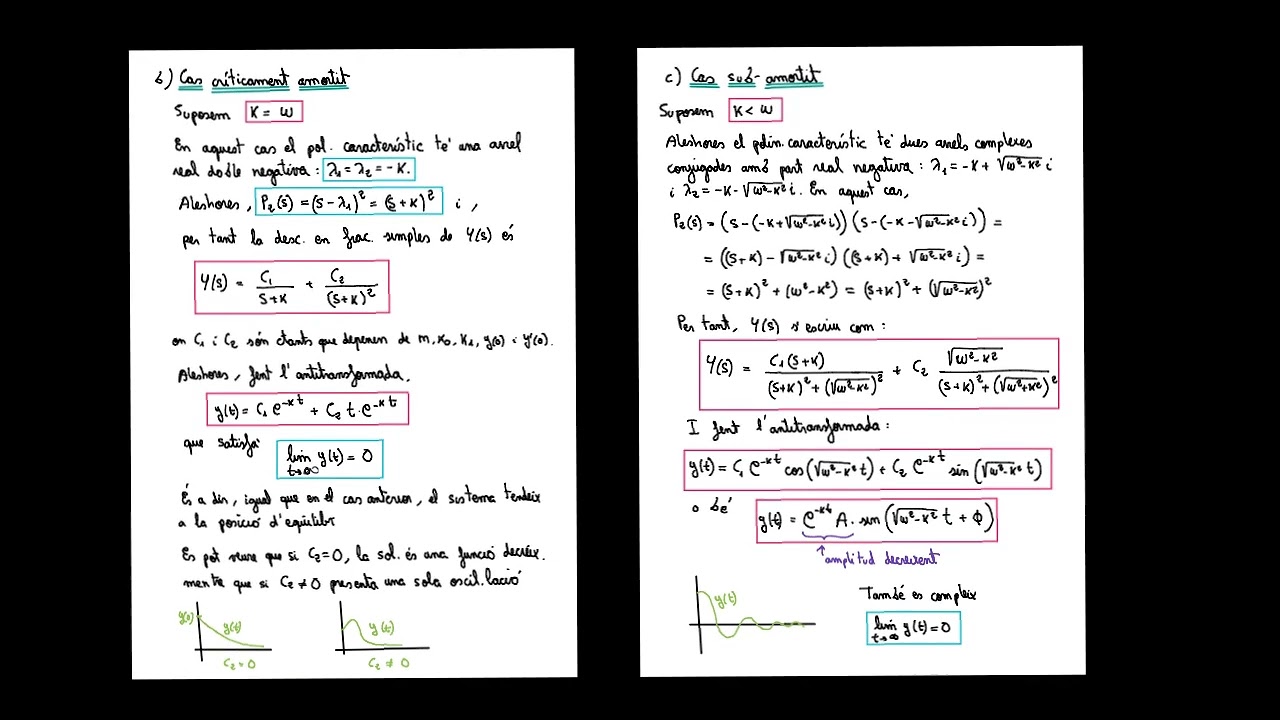 b) Cas críticament amortit
Suposem K = ω
En aquest cas el pol. característic té una arrel
real doble negativa: λ₁ = λ₂ = -K.
Aleshores, P₂(s) = (s-λ₁)² = (s+K)² i,
per tant la desc. en frac. simples de Y(s) és
Y(s) = C₁/(s+K) + C₂/(s+K)²
on C₁ i C₂ són ctants que depenen de m, K₀, K₁, y(0) i y'(0).
Aleshores, fent l'antitransformada,
y(t) = C₁ e^(-Kt) + C₂ t·e^(-Kt)
que satisfà lim t→∞ y(t) = 0
És a dir, igual que en el cas anterior, el sistema tendeix
a la posició d'equilibr
Es pot veure que si C₂=0, la sol. és una funció decreix.
mentre que si C₂≠0 presenta una sola oscil.lació
y(0) y(t) y(t)
C₂ = 0 C₂ ≠ 0
c) Cas sub-amortit
Suposem K < ω
Aleshores el polin. característic té dues arrels complexes
conjugades amb part real negativa: λ₁ = -K + √(ω²-K²) i
i λ₂ = -K - √(ω²-K²) i. En aquest cas,
P₂(s) = (s-(-K+√(ω²-K²) i)) (s-(-K-√(ω²-K²) i)) =
= ((s+K) - √(ω²-K²) i) ((s+K) + √(ω²-K²) i) =
= (s+K)² + (ω²-K²) = (s+K)² + (√(ω²-K²))²
Per tant, Y(s) s'escriu com:
Y(s) = C₁(s+K)/((s+K)² + (√(ω²-K²))²) + C₂ √(ω²-K²)/((s+K)² + (√(ω²+K²))²)
I fent l'antitransformada:
y(t) = C₁ e^(-Kt) cos(√(ω²-K²) t) + C₂ e^(-Kt) sin(√(ω²-K²) t)
o bé y(t) = e^(-Kt) A. sin(√(ω²-K²) t + Φ)
↑ amplitud decreixent
y(t)
També es compleix
lim t→∞ y(t) = 0